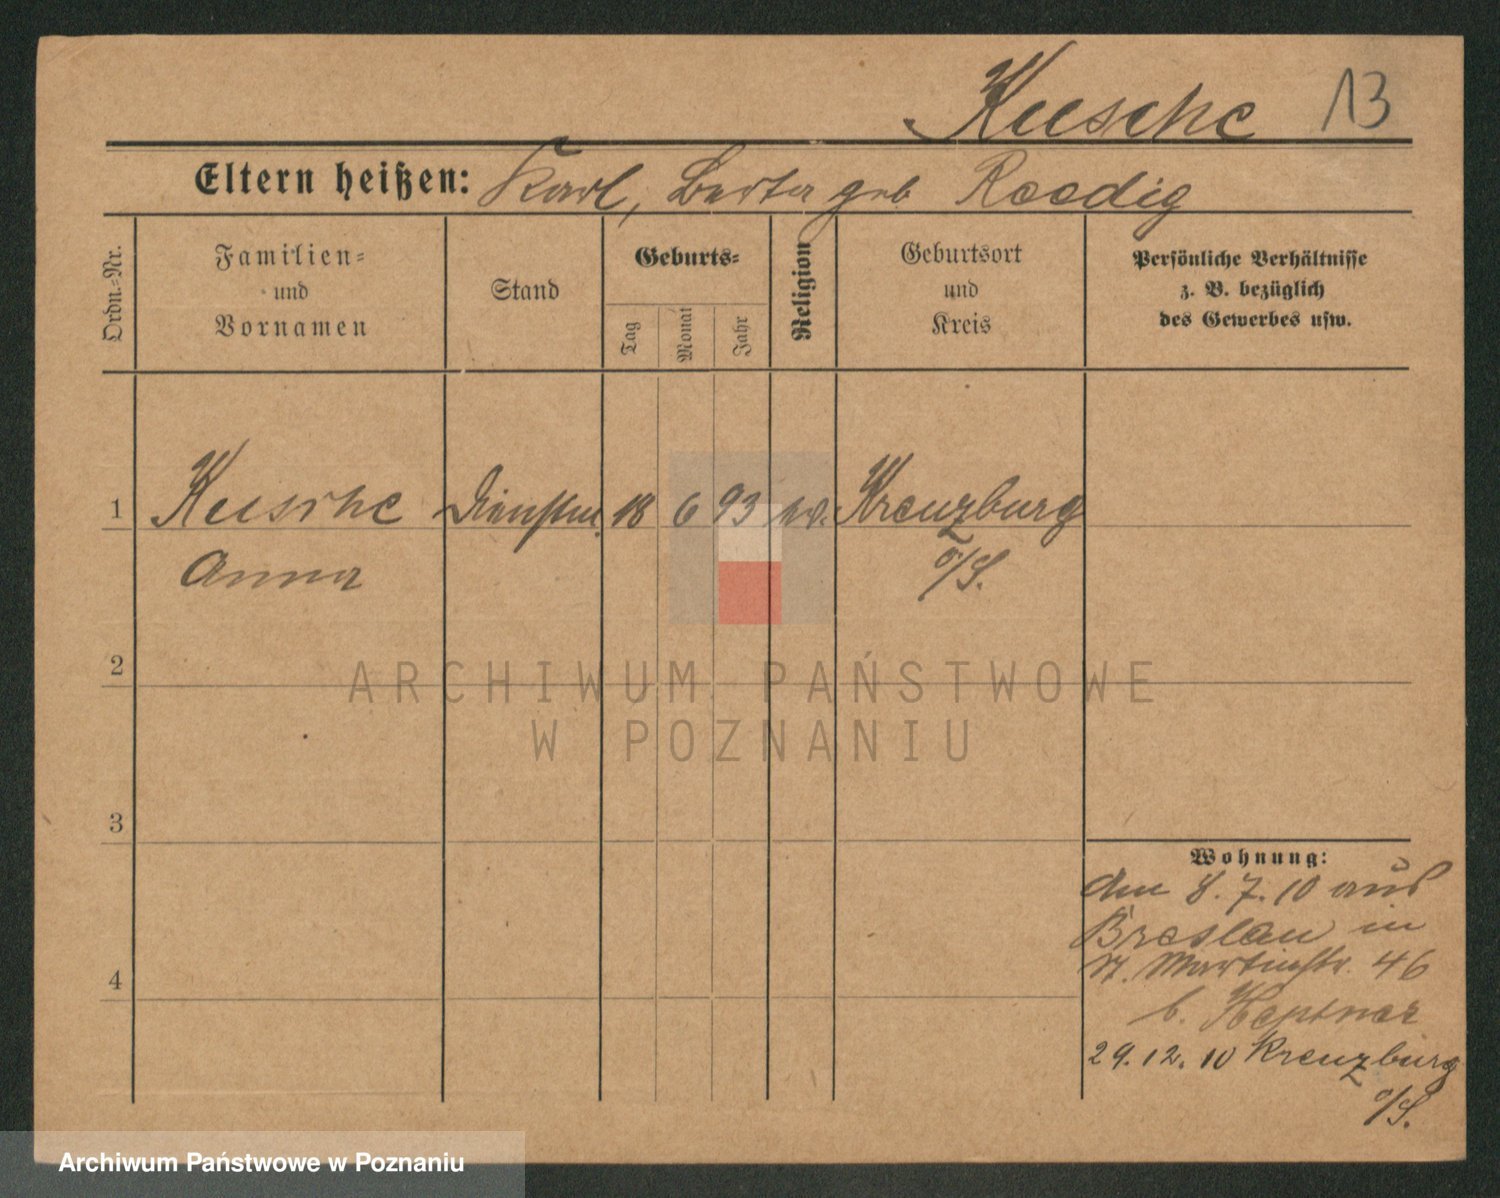 Kusche 13
Eltern heißen: Karl, Berta geb Roedig
Ordn.-Nr.
Familien-
und
Vornamen
Stand
Geburts-
Tag
Monat
Jahr
Religion
Geburtsort
und
Kreis
Persönliche Verhältnisse
z. B. bezüglich
des Gewerbes usw.
1 Kusche 18 6 93 ev. Kreuzburg
Anna o/S.
2
3
4
Wohnung:
den 8.7.10 aus
Breslau in
St. Martinstr. 46
b.
29.12.10 Kreuzburg
o/S.
ARCHIWUM PAŃSTWOWE
W POZNANIU
Archiwum Państwowe w Poznaniu